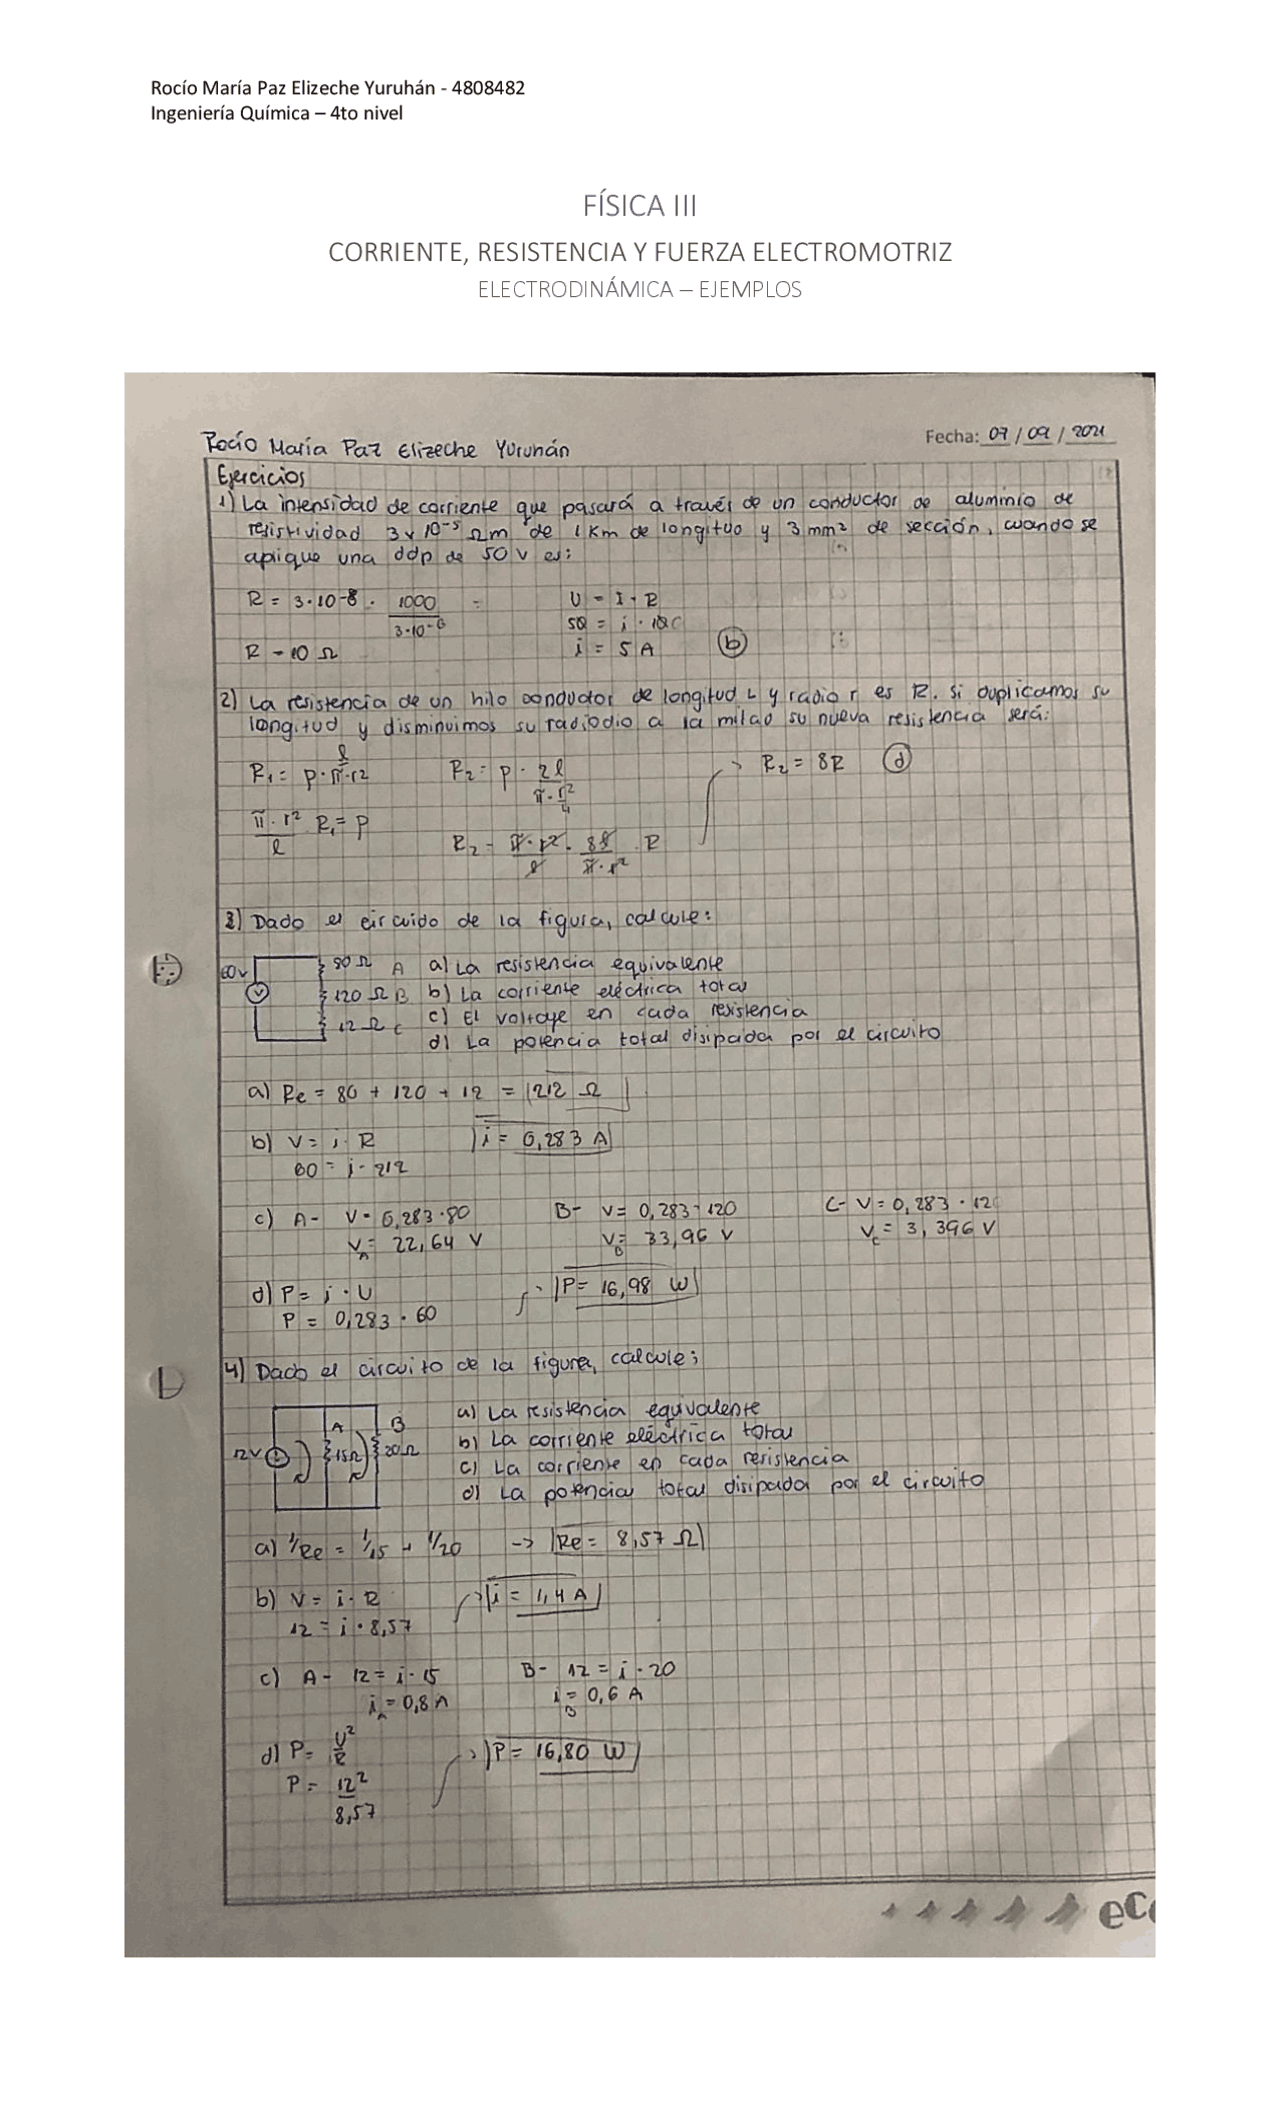 Rocío María Paz Elizeche Yuruhán - 4808482
Ingeniería Química – 4to nivel
FÍSICA III
CORRIENTE, RESISTENCIA Y FUERZA ELECTROMOTRIZ
ELECTRODINÁMICA – EJEMPLOS
Fecha: 07 / 09 / 2021
Rocío María Paz Elizeche Yuruhán
Ejercicios
1) La intensidad de corriente que pasará a través de un conductor de aluminio de
resistividad 3x10⁻⁵ Ωm de 1 Km de longitud y 3 mm² de sección, cuando se
aplique una ddp de 50 V es:
R = 3·10⁻⁸ · 1000 / 3·10⁻⁶ =
U = I · R
50 = i · 10
R = 10 Ω
i = 5 A (b)
2) La resistencia de un hilo conductor de longitud L y radio r es R. Si duplicamos su
longitud y disminuimos su radiodio a la mitad su nueva resistencia será:
R₁ = p · l / π·r²
R₂ = p · 2l / π·r²/4
R₂ = 8R (d)
π·r² / l R₁ = p
R₂ = π·r² / l · 8l / π·r² · R
3) Dado el circuido de la figura, calcule:
60V
80 Ω A
120 Ω B
12 Ω C
a) La resistencia equivalente
b) La corriente eléctrica total
c) El voltaje en cada resistencia
d) La potencia total disipada por el circuito
a) Re = 80 + 120 + 12 = 212 Ω
b) V = i · R
i = 0,283 A
60 = i · 212
c) A- V = 0,283 · 80
B- V = 0,283 · 120
C- V = 0,283 · 12
V_A = 22,64 V
V_B = 33,96 V
V_C = 3,396 V
d) P = i · U
P = 16,98 W
P = 0,283 · 60
4) Dado el circuito de la figura, calcule:
12V
A
15Ω
B
20Ω
a) La resistencia equivalente
b) La corriente eléctrica total
c) La corriente en cada resistencia
d) La potencia total disipada por el circuito
a) 1/Re = 1/15 + 1/20 -> Re = 8,57 Ω
b) V = i · R
i = 1,4 A
12 = i · 8,57
c) A- 12 = i · 15
B- 12 = i · 20
i_A = 0,8 A
i_B = 0,6 A
d) P = U² / R
P = 16,80 W
P = 12² / 8,57